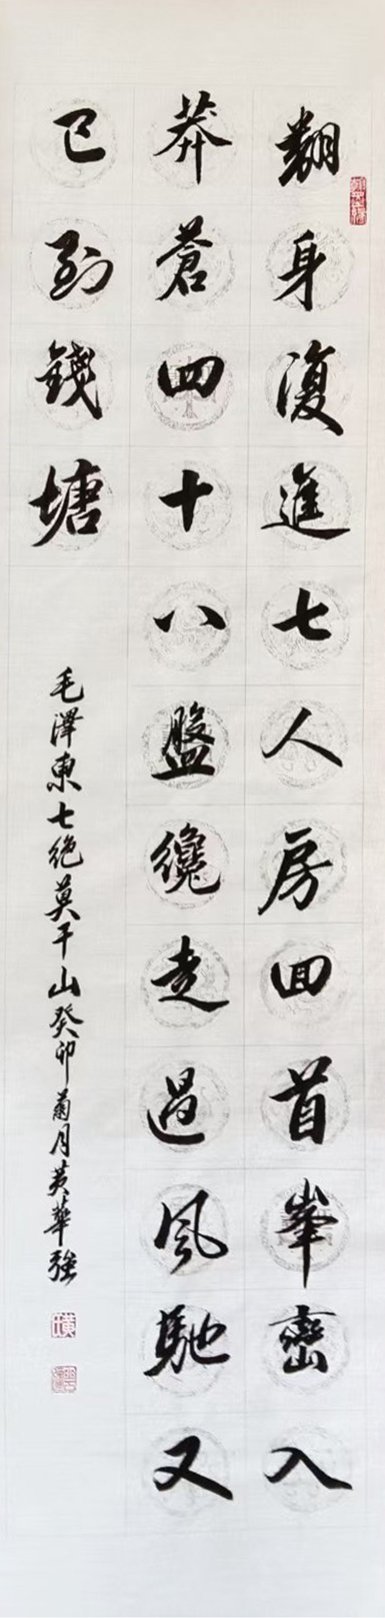 翻身復進七人房回首峯巒入
莽蒼四十八盤纔走過風馳又
已到錢塘
毛澤東七絶莫干山癸卯菊月黄華強